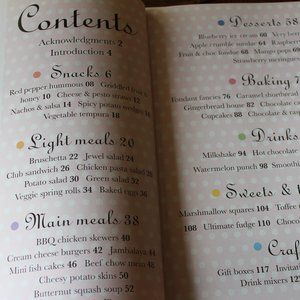 Contents
Acknowledgments 2
Introduction 4
Snacks 6
Red pepper hummous 08 Griddled fruit &
honey 10 Cheese & pesto straws 12
Nachos & salsa 14 Spicy potato wedges
Vegetable tempura 18
Light meals 20
Bruschetta 22 Jewel salad 24
Club sandwich 26 Chicken pasta salad 28
Potato salad 30 Green salad 32
Veggie spring rolls 34 Baked eggs 36
Main meals 38
BBQ chicken skewers 40
Cream cheese burgers 42 Jambalaya 44
Mini fish cakes 46 Beef chow mein 48
Cheesy potato skins 50
Butternut squash soup 52
Desserts 58
Blueberry ice cream 60 Very berry
Apple crumble sundae 64 Raspberry
Fruit & choc fondue 68 Mango pops
Strawberry meringue
Baking
Fondant fancies 76 Caramel
Gingerbread house 82 Chocolate
Cupcakes 88 Chocolate
Drinks
Milkshake 94 Hot chocolate
Watermelon punch 98 Smooth
Sweets &
Marshmallow squares 104 Toffee
108 Ultimate fudge 110 Choco
Craf
Gift boxes 117 Invitat
Drink mixers 12